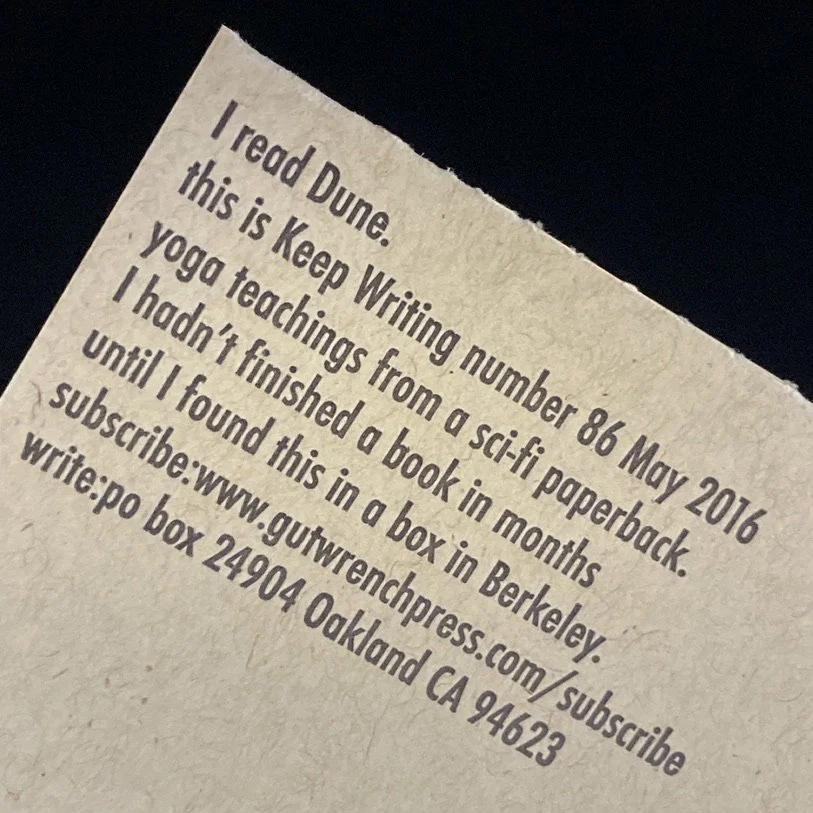 I read Dune.
this is Keep Writing number 86 May 2016
yoga teachings from a sci-fi paperback.
I hadn't finished a book in months
until I found this in a box in Berkeley.
subscribe:www.gutwrenchpress.com/subscribe
write:po box 24904 Oakland CA 94623